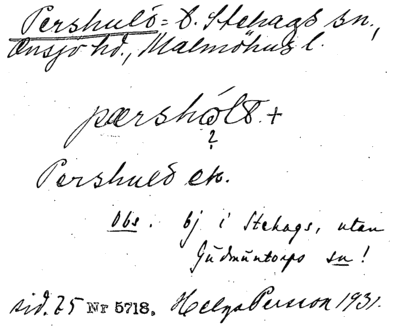 Pershuld = Ö. Stehags sn.,
Onsjö hd., Malmöhus l.
pærshólt. +
?
Pershuld ek.
Obs. bj i Stehags, utan
Gudmuntorps sn!
sid. 75 Nr 5718. Helga Persson 1931.